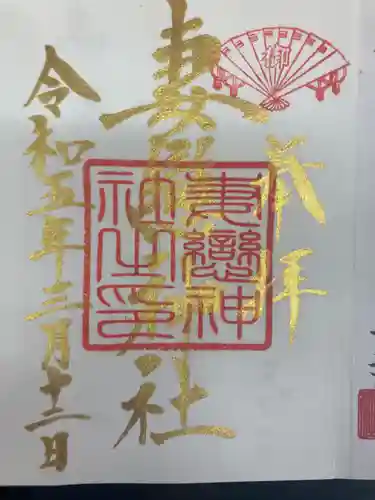 御
奉拝
妻戀神社
妻戀神
社之印
令和五年三月十二日